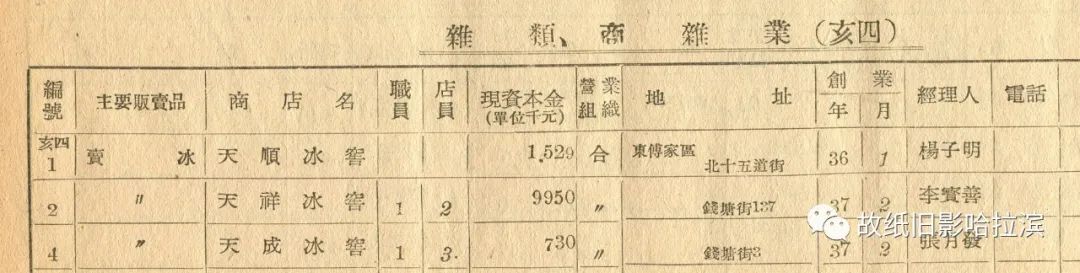 雜類、商雜業(亥四)
編號 主要販賣品 商店名 職員 店員 現資本金(單位千元) 營業組織 地址 創業年月 經理人 電話
亥四1 賣冰 天順冰窖 1,529 合 東傅家區北十五道街 36 1 楊子明
2 〃 天祥冰窖 1 2 9950 〃 錢塘街137 37 2 李寳善
4 〃 天成冰窖 1 3 730 〃 錢塘街3 37 2 張月發
故纸旧影哈拉滨